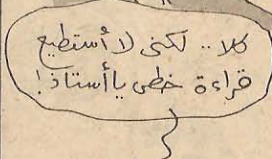 كلا .. لكنى لا أستطيع
قراءة خطى يا أستاذ !